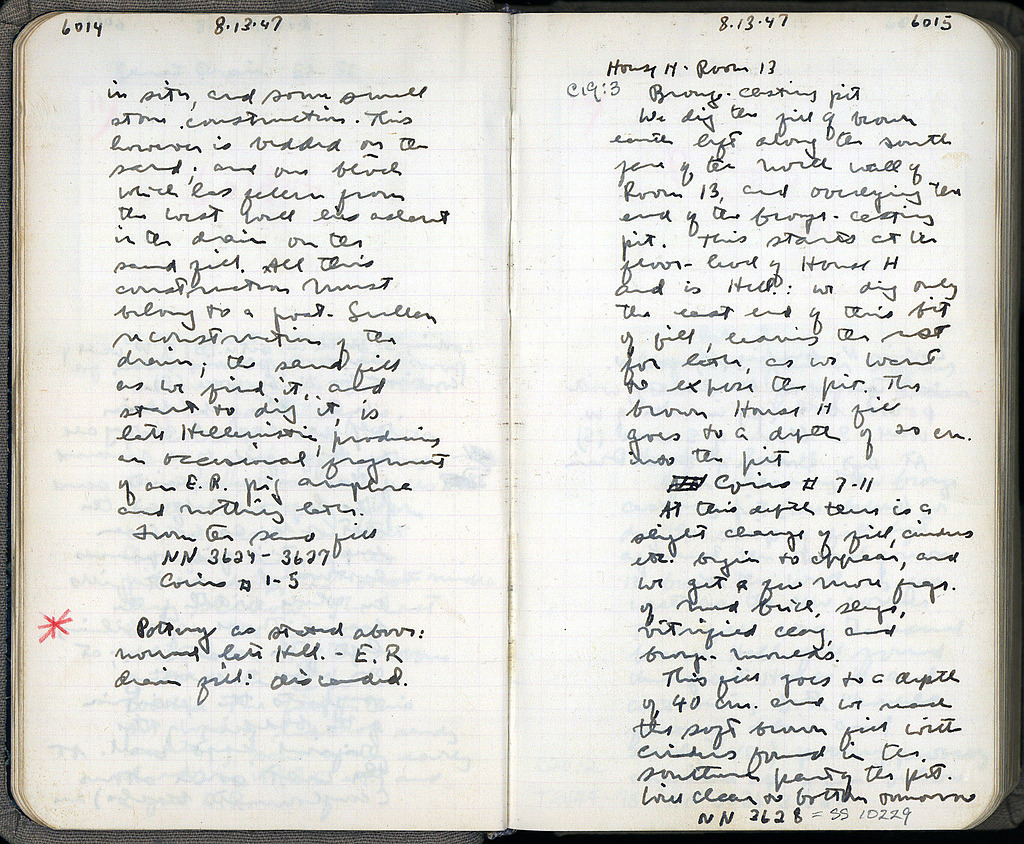 6014
8.13.47
in situ, and some small
stone construction. This
however is bedded on the
sand; and one block
which has fallen from
the west wall lies aslant
in the drain on the
sand fill. All this
construction must
belong to a post-Sullan
reconstruction of the
drain; the sand fill
as we find it, and
start to dig it is
late Hellenistic, producing
an occasional fragment
of an E.R. pig amphora
and nothing later.
From the sand fill
NN 3624 - 3627
Coins # 1-5
Pottery as stated above:
normal late Hell. E.R
drain fill: discarded.
8.13.47
6015
House H - Room 13
C19:3 Bronze-casting pit
We dig the fill of brown
earth left along the south
face of the north wall of
Room 13, and overlying the
end of the bronze-casting
pit. This starts at the
floor-level of House H
and is Hell.: we dig only
the east end of this bit
of fill, leaving the rest
for later, as we want
to expose the pit. The
brown House H fill
goes to a depth of 20 cm.
into the pit
Coins # 7-11
At this depth there is a
slight change of fill, cinders
etc. begin to appear, and
we get a few more frgs.
of mud brick, slag,
vitrified clay, and
bronze moulds.
This fill goes to a depth
of 40 cm. and we reach
the soft brown fill with
cinders found in the
southern part of the pit.
Will clean to bottom tomorrow
NN 3628 = SS 10229